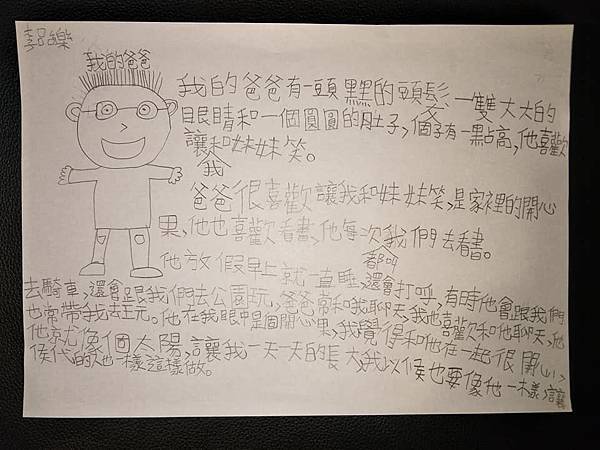 李品樂
我的爸爸
我的爸爸有一頭黑黑的頭髮,一雙大大的
眼睛和一個圓圓的肚子,個子有一點高,他喜歡
讓我和妹妹笑。
爸爸很喜歡讓我和妹妹笑,是家裡的開心
果,他也喜歡看書,他每次都叫我們去看書。
他放假早上就一直睡,還會打呼,有時他會跟我們
去騎車,還會跟我們去公園玩,爸爸常和我聊天,我也喜歡和他聊天,他
也常帶我去玩。他在我眼中是個開心果,我覺得和他在一起很開心,
他就像個太陽,讓我一天一天的長大,我以候也要像他一樣,讓
候代的人也一樣這樣做。